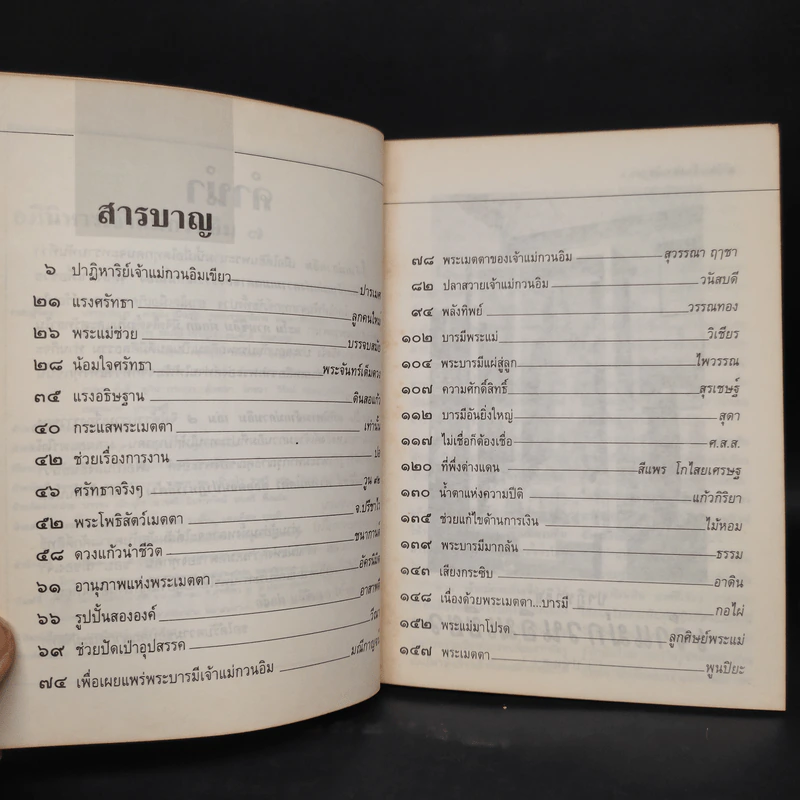 สารบาญ
๖ ปาฏิหาริย์เจ้าแม่กวนอิมเขียว ปารเมศ
๒๑ แรงศรัทธา ลูกคนใหม่
๒๖ พระแม่ช่วย บรรจบสมัย
๒๘ น้อมใจศรัทธา พระจันทร์เต็มดวง
๓๕ แรงอธิษฐาน ดินสอแก้ว
๔๐ กระแสพระเมตตา เท่านั้น
๔๒ ช่วยเรื่องการงาน
๔๖ ศรัทธาจริงๆ
๕๒ พระโพธิสัตว์เมตตา จ.ปรีชาไว
๕๘ ดวงแก้วนำชีวิต ชนากานต์
๖๑ อานุภาพแห่งพระเมตตา อัครนิมิต
๖๖ รูปปั้นสององค์
๖๙ ช่วยปัดเป่าอุปสรรค วีณา
๗๔ เพื่อเผยแพร่พระบารมีเจ้าแม่กวนอิม มณีกาญจน์
๗๘ พระเมตตาของเจ้าแม่กวนอิม สุวรรณา ฤๅชา
๘๒ ปลาสวายเจ้าแม่กวนอิม วนัสบดี
๙๔ พลังทิพย์ วรรณทอง
๑๐๒ บารมีพระแม่ วิเชียร
๑๐๔ พระบารมีแผ่สู่ลูก ไพวรรณ
๑๐๗ ความศักดิ์สิทธิ์ สุรเชษฐ์
๑๑๒ บารมีอันยิ่งใหญ่ สุดา
๑๑๗ ไม่เชื่อก็ต้องเชื่อ ศ.ส.ส.
๑๒๐ ที่พึ่งต่างแดน สีแพร โกไสยเศรษฐ
๑๓๐ น้ำตาแห่งความปีติ แก้วกิริยา
๑๓๕ ช่วยแก้ไขด้านการเงิน ไม้หอม
๑๓๙ พระบารมีมากล้น ธรรม
๑๔๓ เสียงกระซิบ อาดิน
๑๔๘ เนื่องด้วยพระเมตตา...บารมี กอไผ่
๑๕๒ พระแม่มาโปรด ลูกศิษย์พระแม่
๑๕๗ พระเมตตา พูนปิยะ